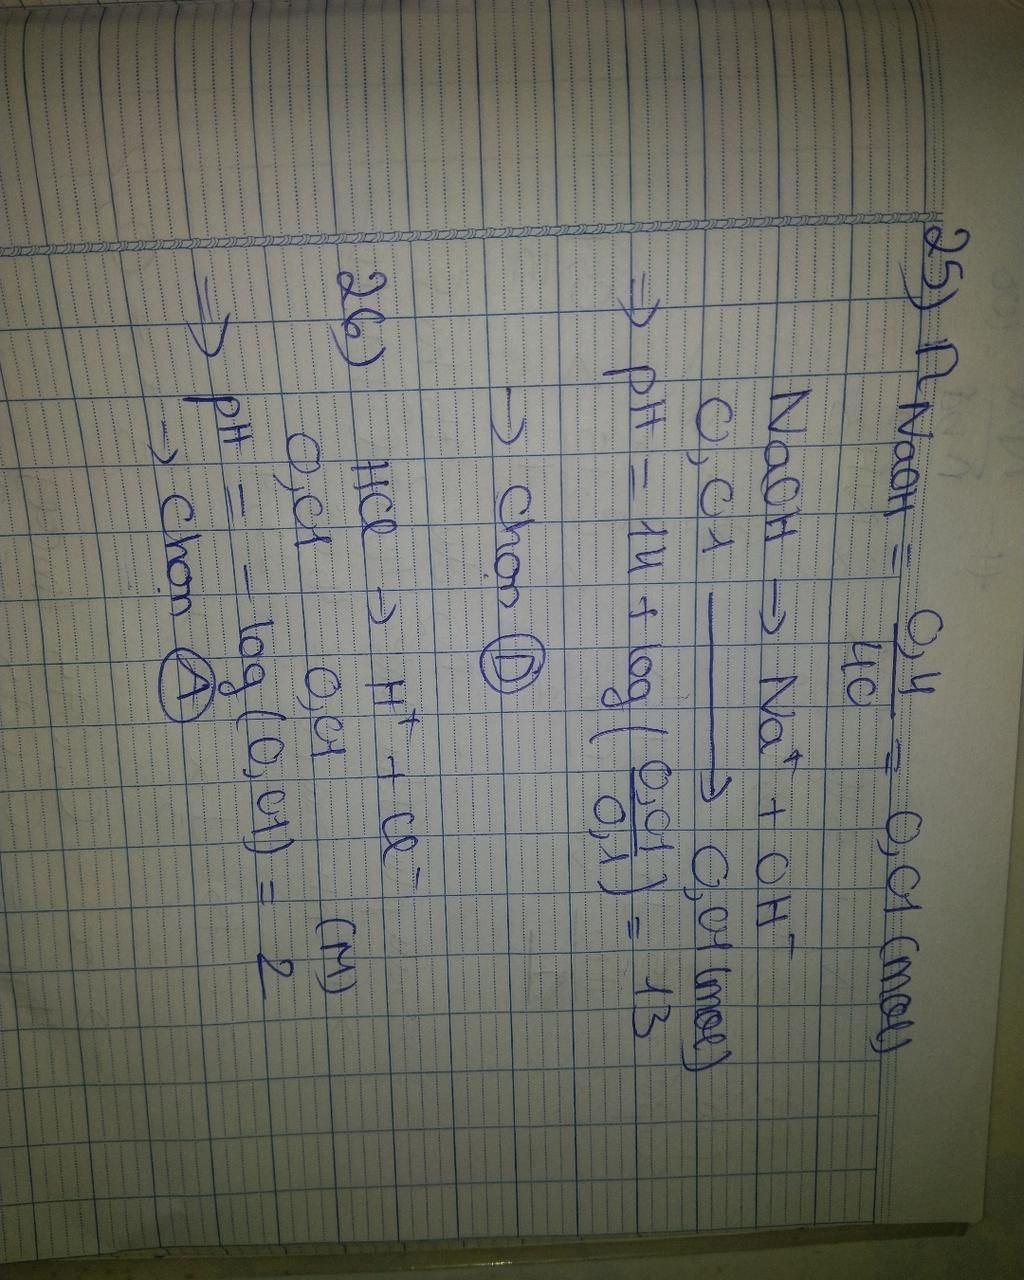 25) n NaOH = 0,4 / 40 = 0,01 (mol)
NaOH → Na⁺ + OH⁻
0,01 ⟶ 0,01 (mol)
⇒ pH = 14 + log ( 0,01 / 0,1 ) = 13
→ Chọn D
26) HCl → H⁺ + Cl⁻
0,01 0,01 (M)
⇒ pH = - log (0,01) = 2
→ Chọn A